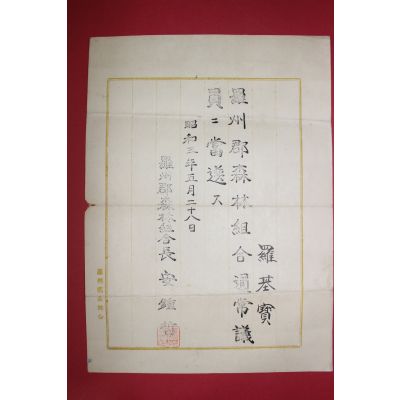 羅基寶
羅州郡森林組合通常議
員ニ當選ス
昭和三年五月二十八日
羅州郡森林組合長 安鍾
羅州郡森林組合